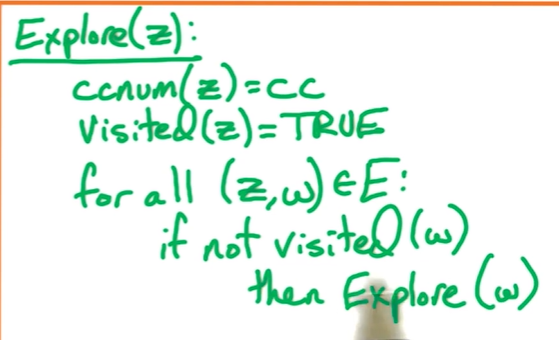 Explore(z):
ccnum(z)=cc
visited(z)=TRUE
for all (z,w)∈E:
if not visited(w)
then Explore(w)